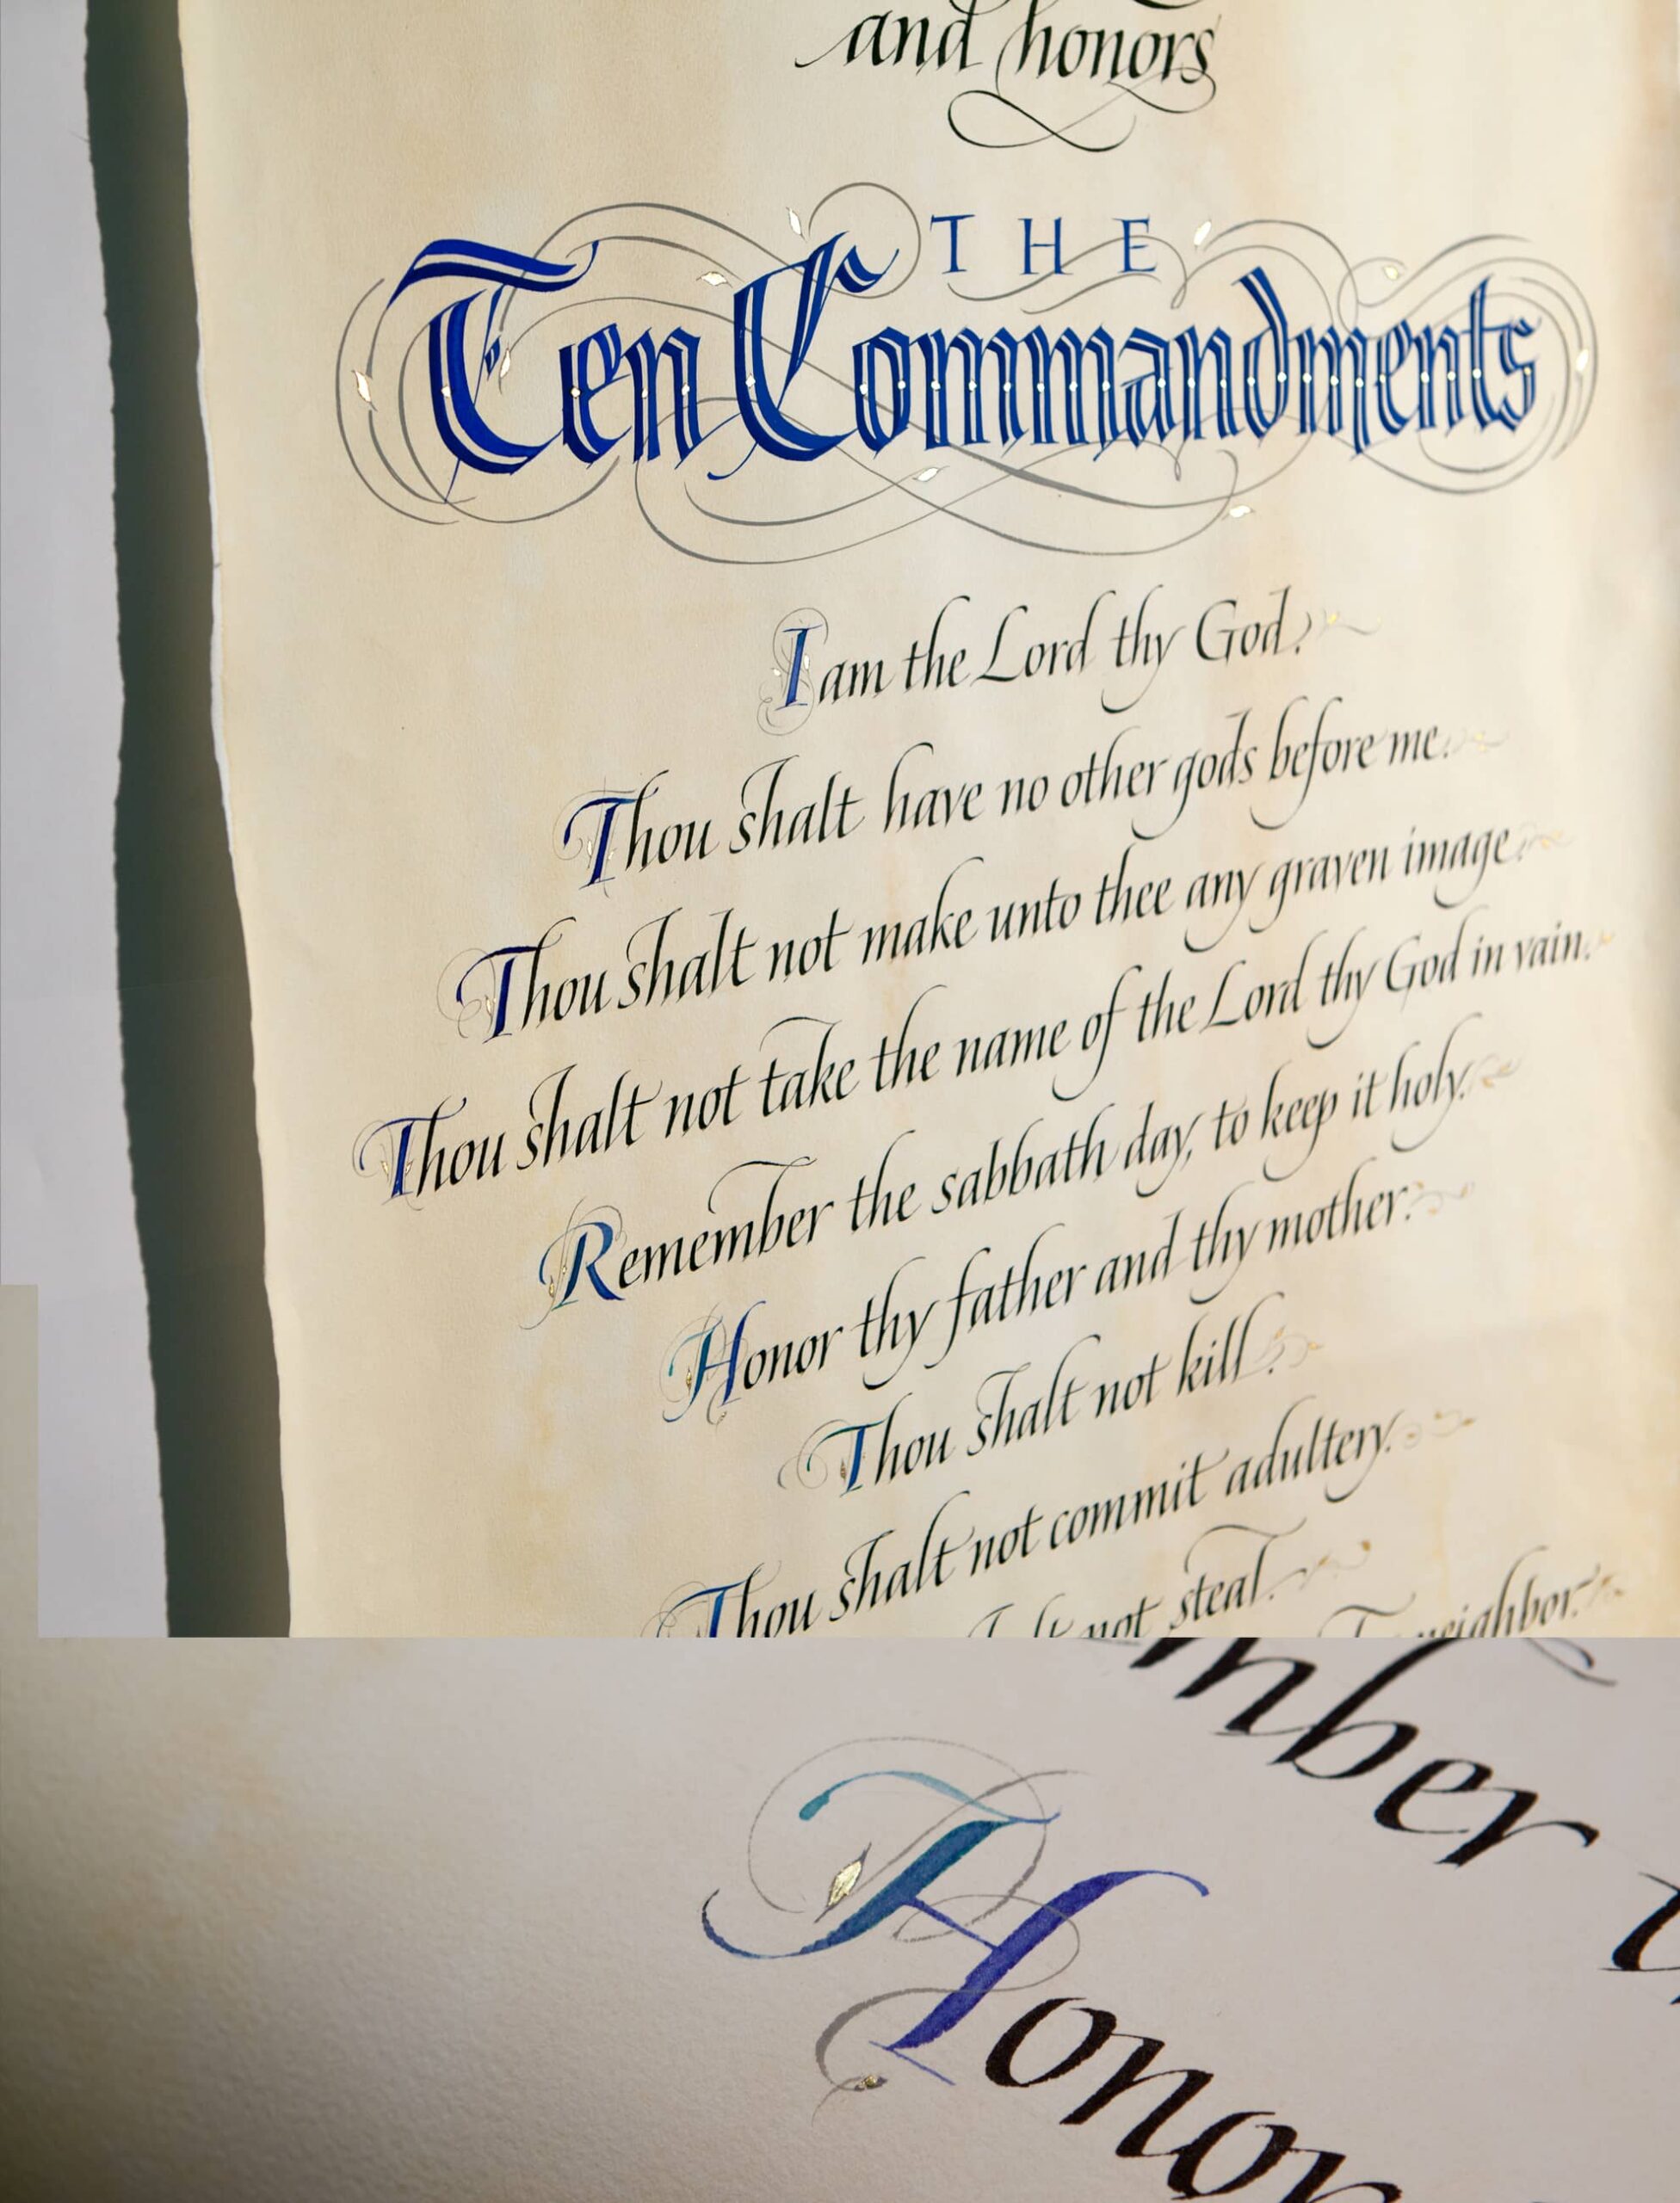 and honors
THE
Ten Commandments
I am the Lord thy God.
Thou shalt have no other gods before me.
Thou shalt not make unto thee any graven image.
Thou shalt not take the name of the Lord thy God in vain.
Remember the sabbath day, to keep it holy.
Honor thy father and thy mother.
Thou shalt not kill.
Thou shalt not commit adultery.
not steal.
neighbor.
mber
Honor